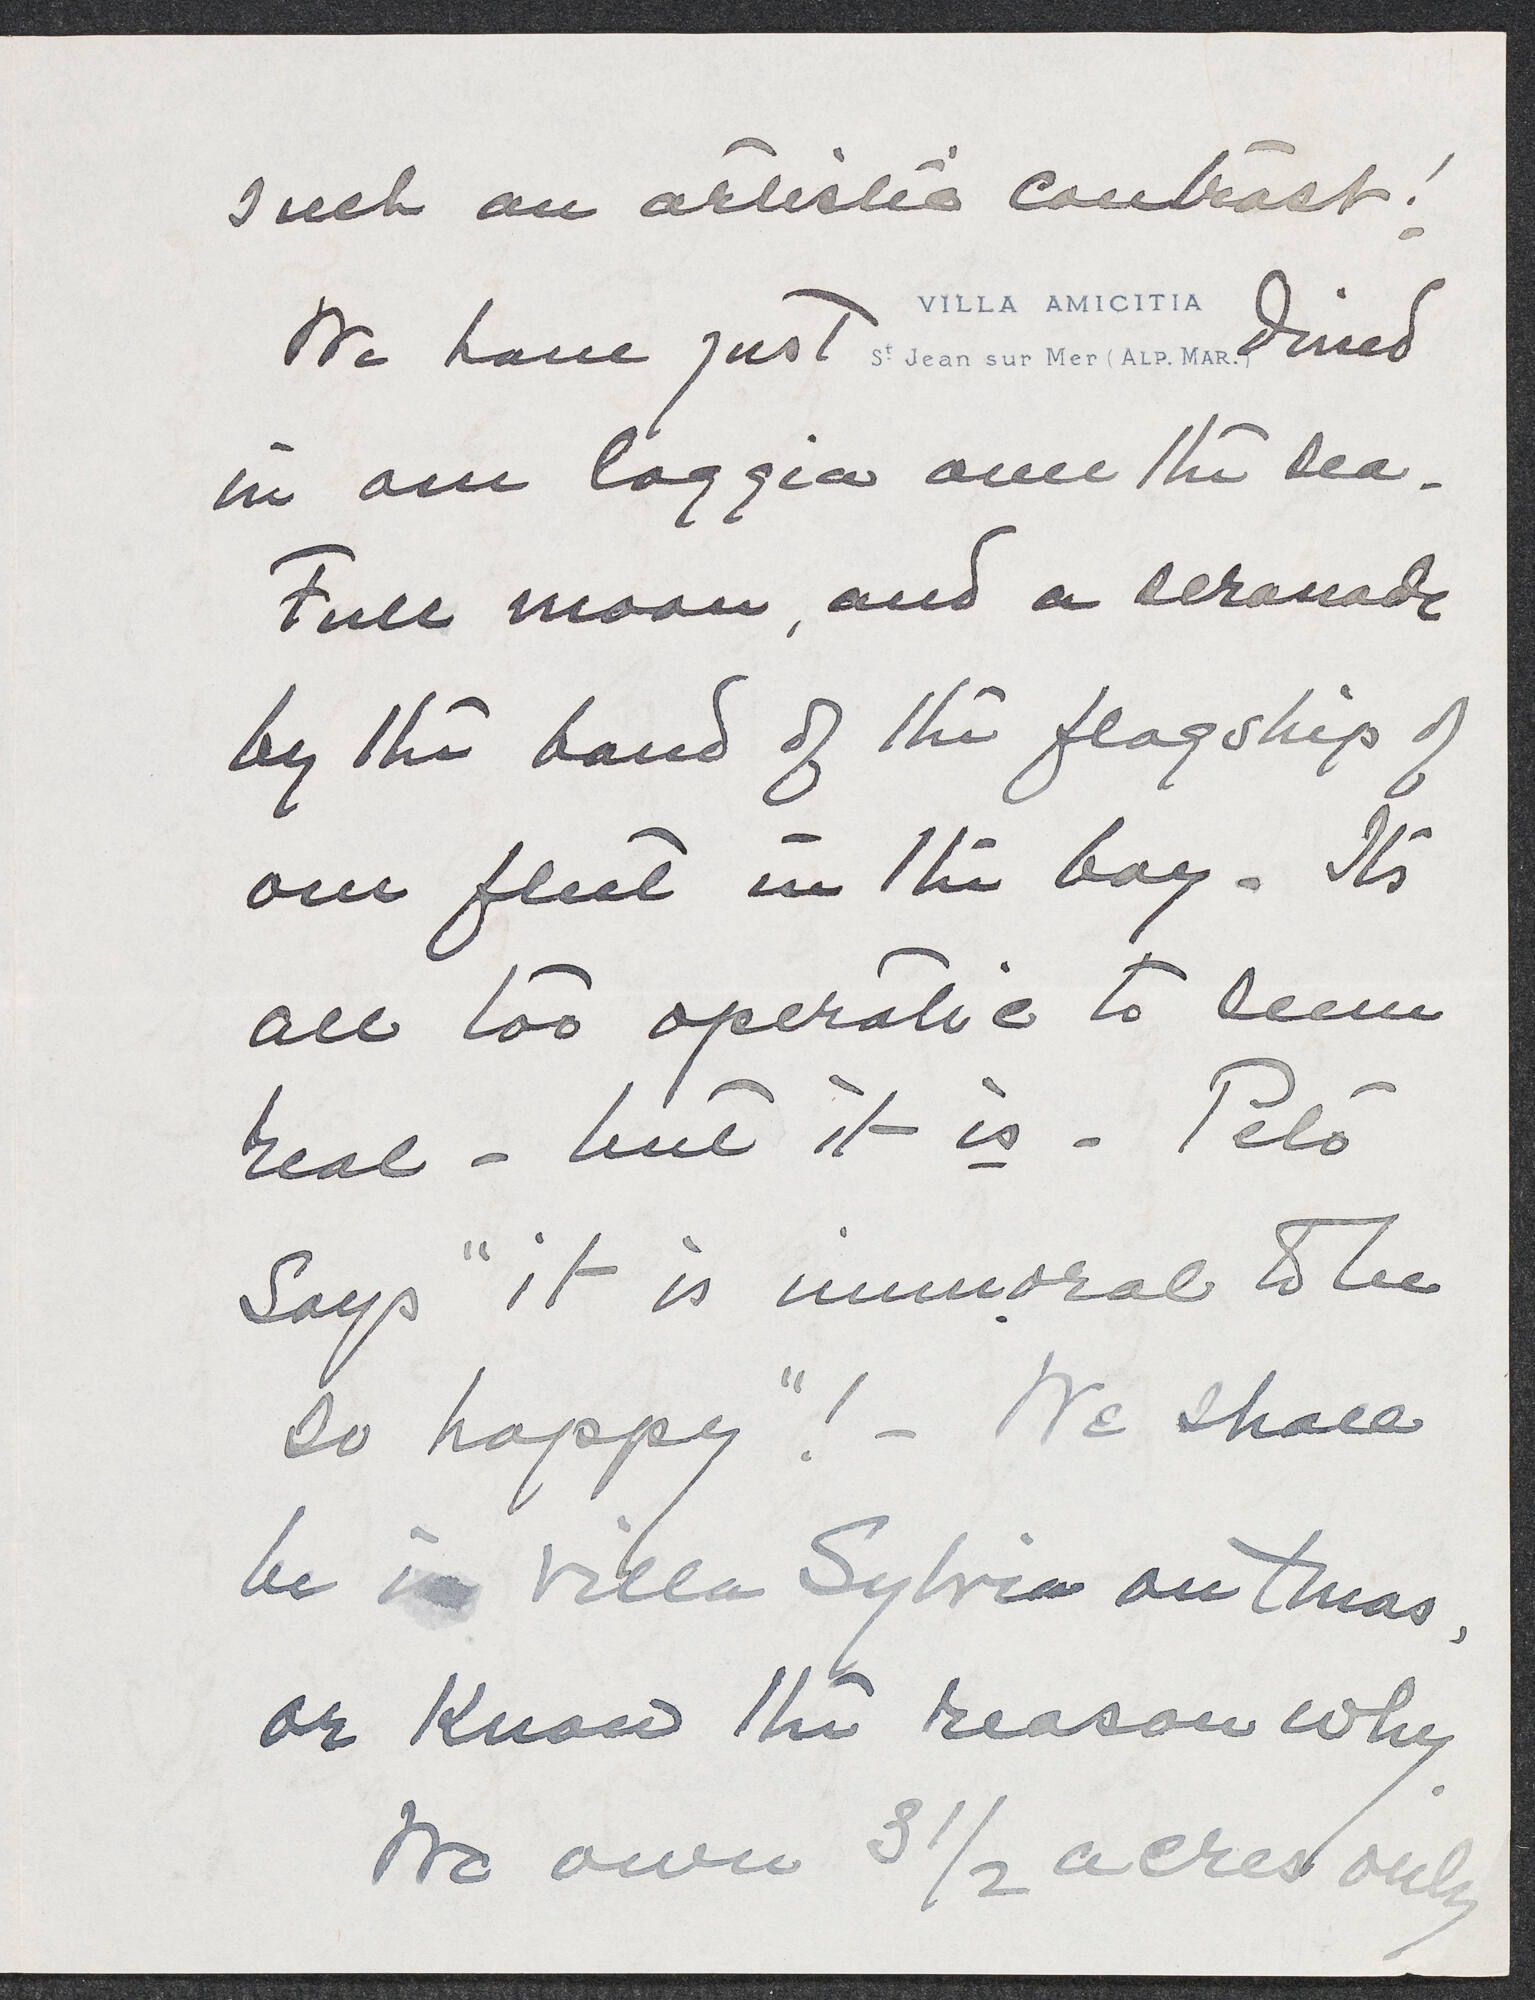 such an artistic contrast!
VILLA AMICITIA
St Jean sur Mer (ALP. MAR.)
We have just dined
in our loggia over the sea.
Full moon, and a seranade
by the band of the flagship of
our fleet in the bay. Its
all too operatic to seem
real - but it is - Peto
Says "it is immoral to be
so happy"! - We shall
be in Villa Sylvia on Xmas,
or know the reason why.
We own 3 1/2 acres only